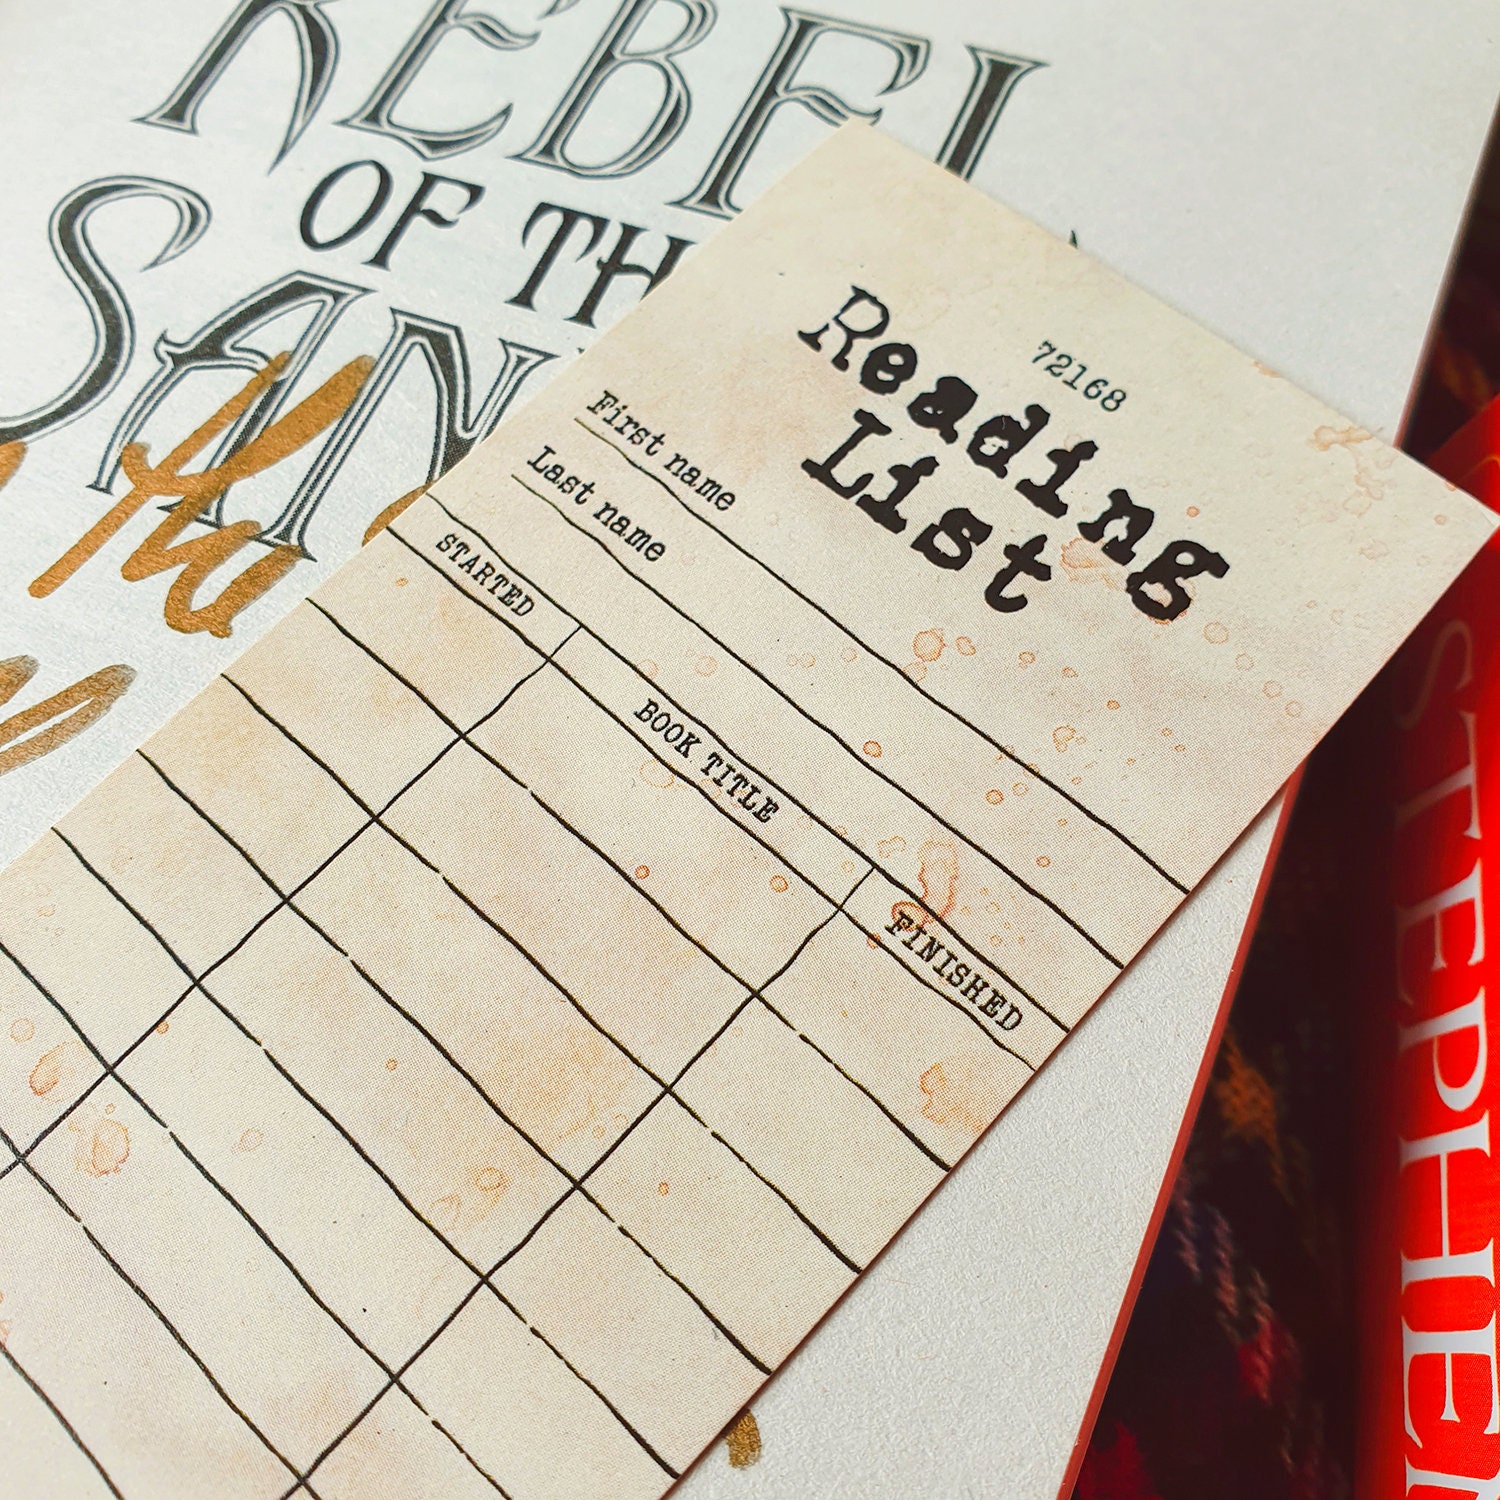 REBEL
OF THE
SANDS
72168
Reading
List
First name
Last name
STARTED
BOOK TITLE
FINISHED